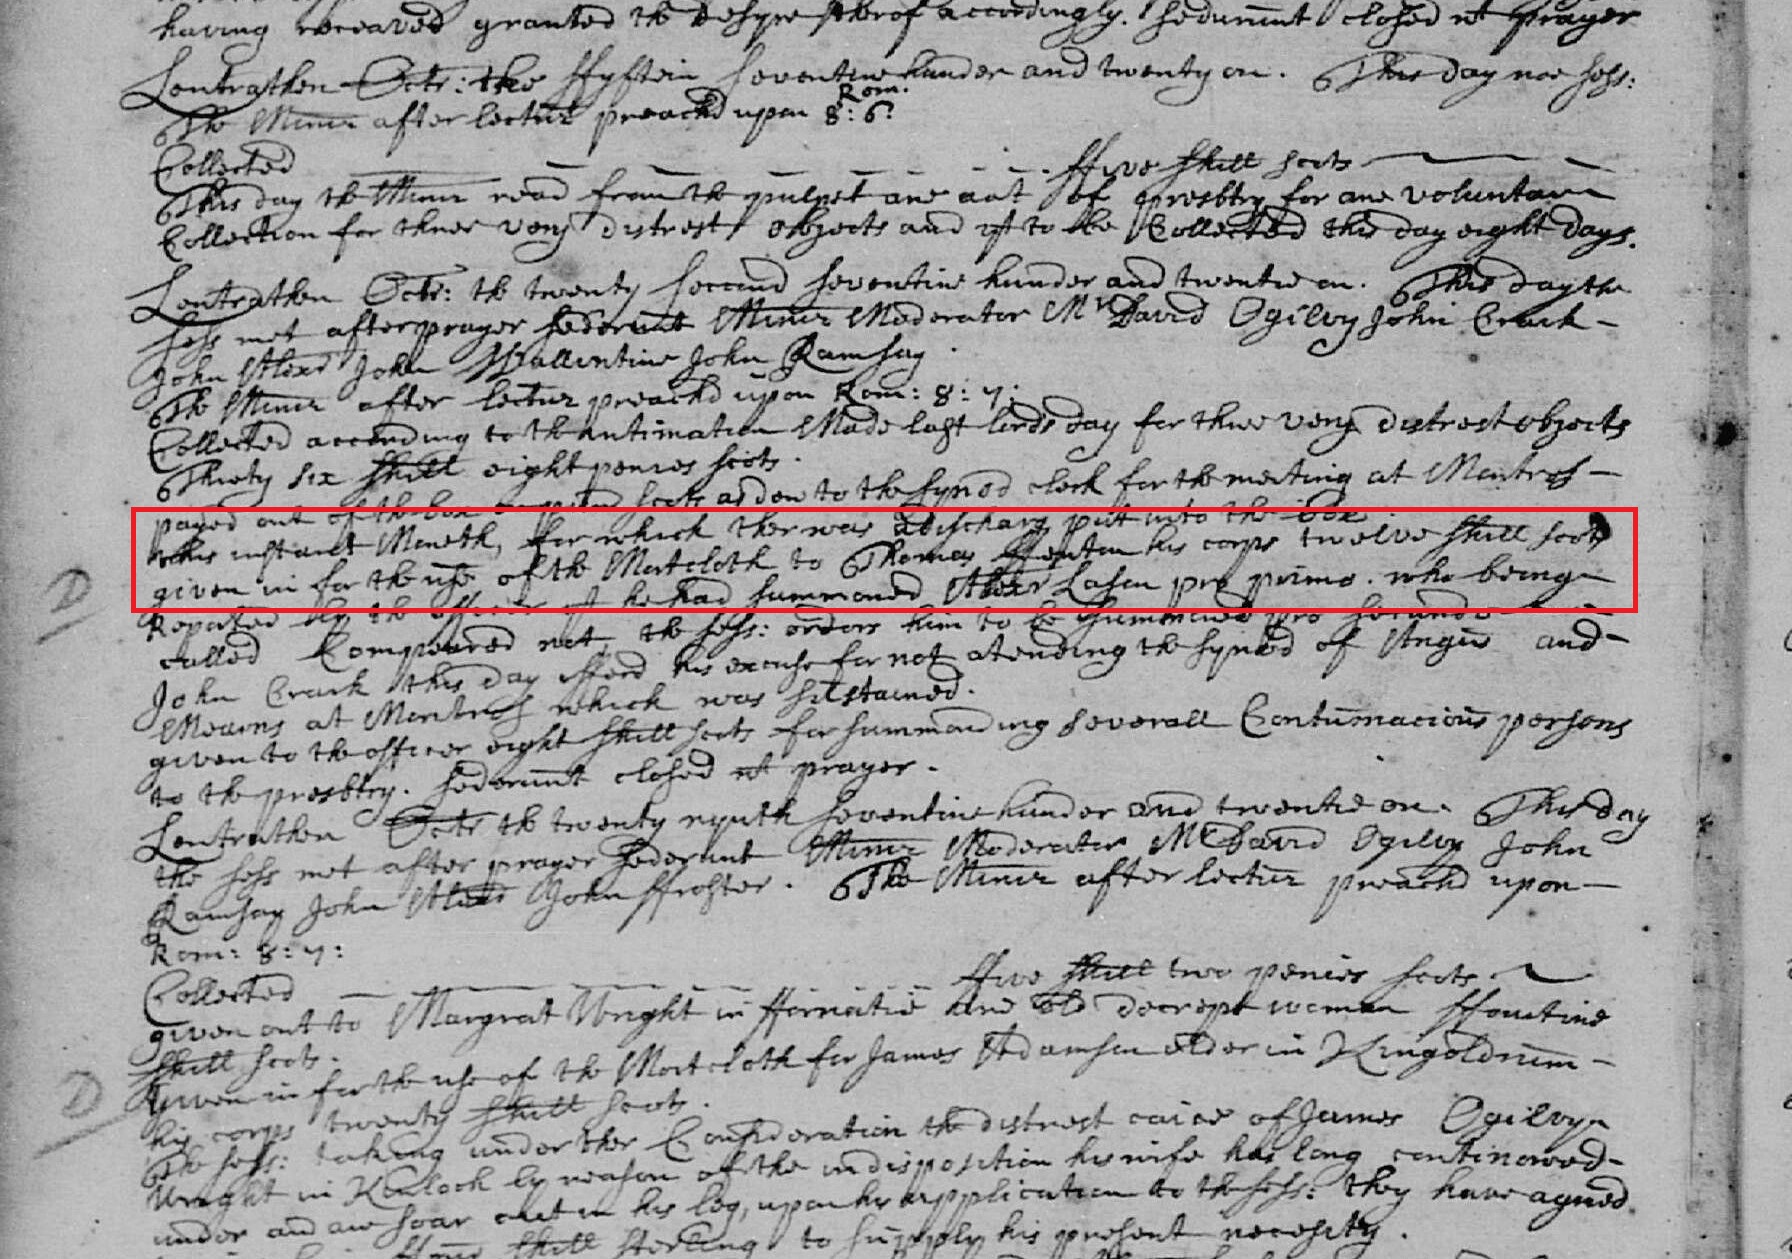 having receaved granted the desyre therof accordingly. Sederunt closed wt prayer
Lentrathen Octr: the ffyftein seventine hunder and twenty on. This day noe sess:
Rom.
The Minr after lectur preachd upon 8: 6:
Collected ffive shill scots
This day the Minr read from the pulpet ane act of presbtry for ane voluntar
Collection for three very distrest objects and yt to be Collected this day eight days.
Lentrathen Octr: the twenty second seventine hunder and twentie on. This day the
sess met after prayer sederunt Minr Moderator Mr David Ogilvy John Crack
John Alexr John Wallentine John Ramsay
The Minr after lectur preachd upon Rom: 8: 7:
Collected according to the intimation Made last lords day for three very distrest objects
Thirty six shill eight penies scots.
payed out of the box scots as dew to the synod clerk for the meeting at Montros
this instant Moneth, for which ther was a discharg put into the box.
given in for the use of the Mortcloth to Thomas ffenton his corps twelve shill scots
Reported by the officer yt he had summoned Alexr Lason pro primo. who being
called Compeared not, the sess: orders him to be summoned pro secundo
John Crack this day offerd his excuse for not atending the synod of Angus and
Mearns at Montros which was sustained.
given to the officer eight shill scots for summonding severall Contumacious persons
to the presbtry. Sederunt closed wt prayer.
Lentrathen Octr the twenty nynth seventine hunder and twentie on. This day
the sess met after prayer sederunt Minr Moderator Mr David Ogilvy John
Ramsay John Alexr John ffroster. The Minr after lectur preachd upon
Rom: 8: 7:
Collected ffive shill two penies scots
given out to Margrat Wright in ffornatie ane old decrept woman ffourtine
shill scots.
Given in for the use of the Mortcloth for James Adamson elder in Kingoldrum
his corps twenty shill scots.
The sess: taking under ther Consideration the distrest caice of James Ogilvy
Wright in Kinloch by reason of the indisposition his wife has long continowed
under and ane soar in his leg, upon his application to the sess: they have agreed
shill sterling to supply his present necesity.
D
D